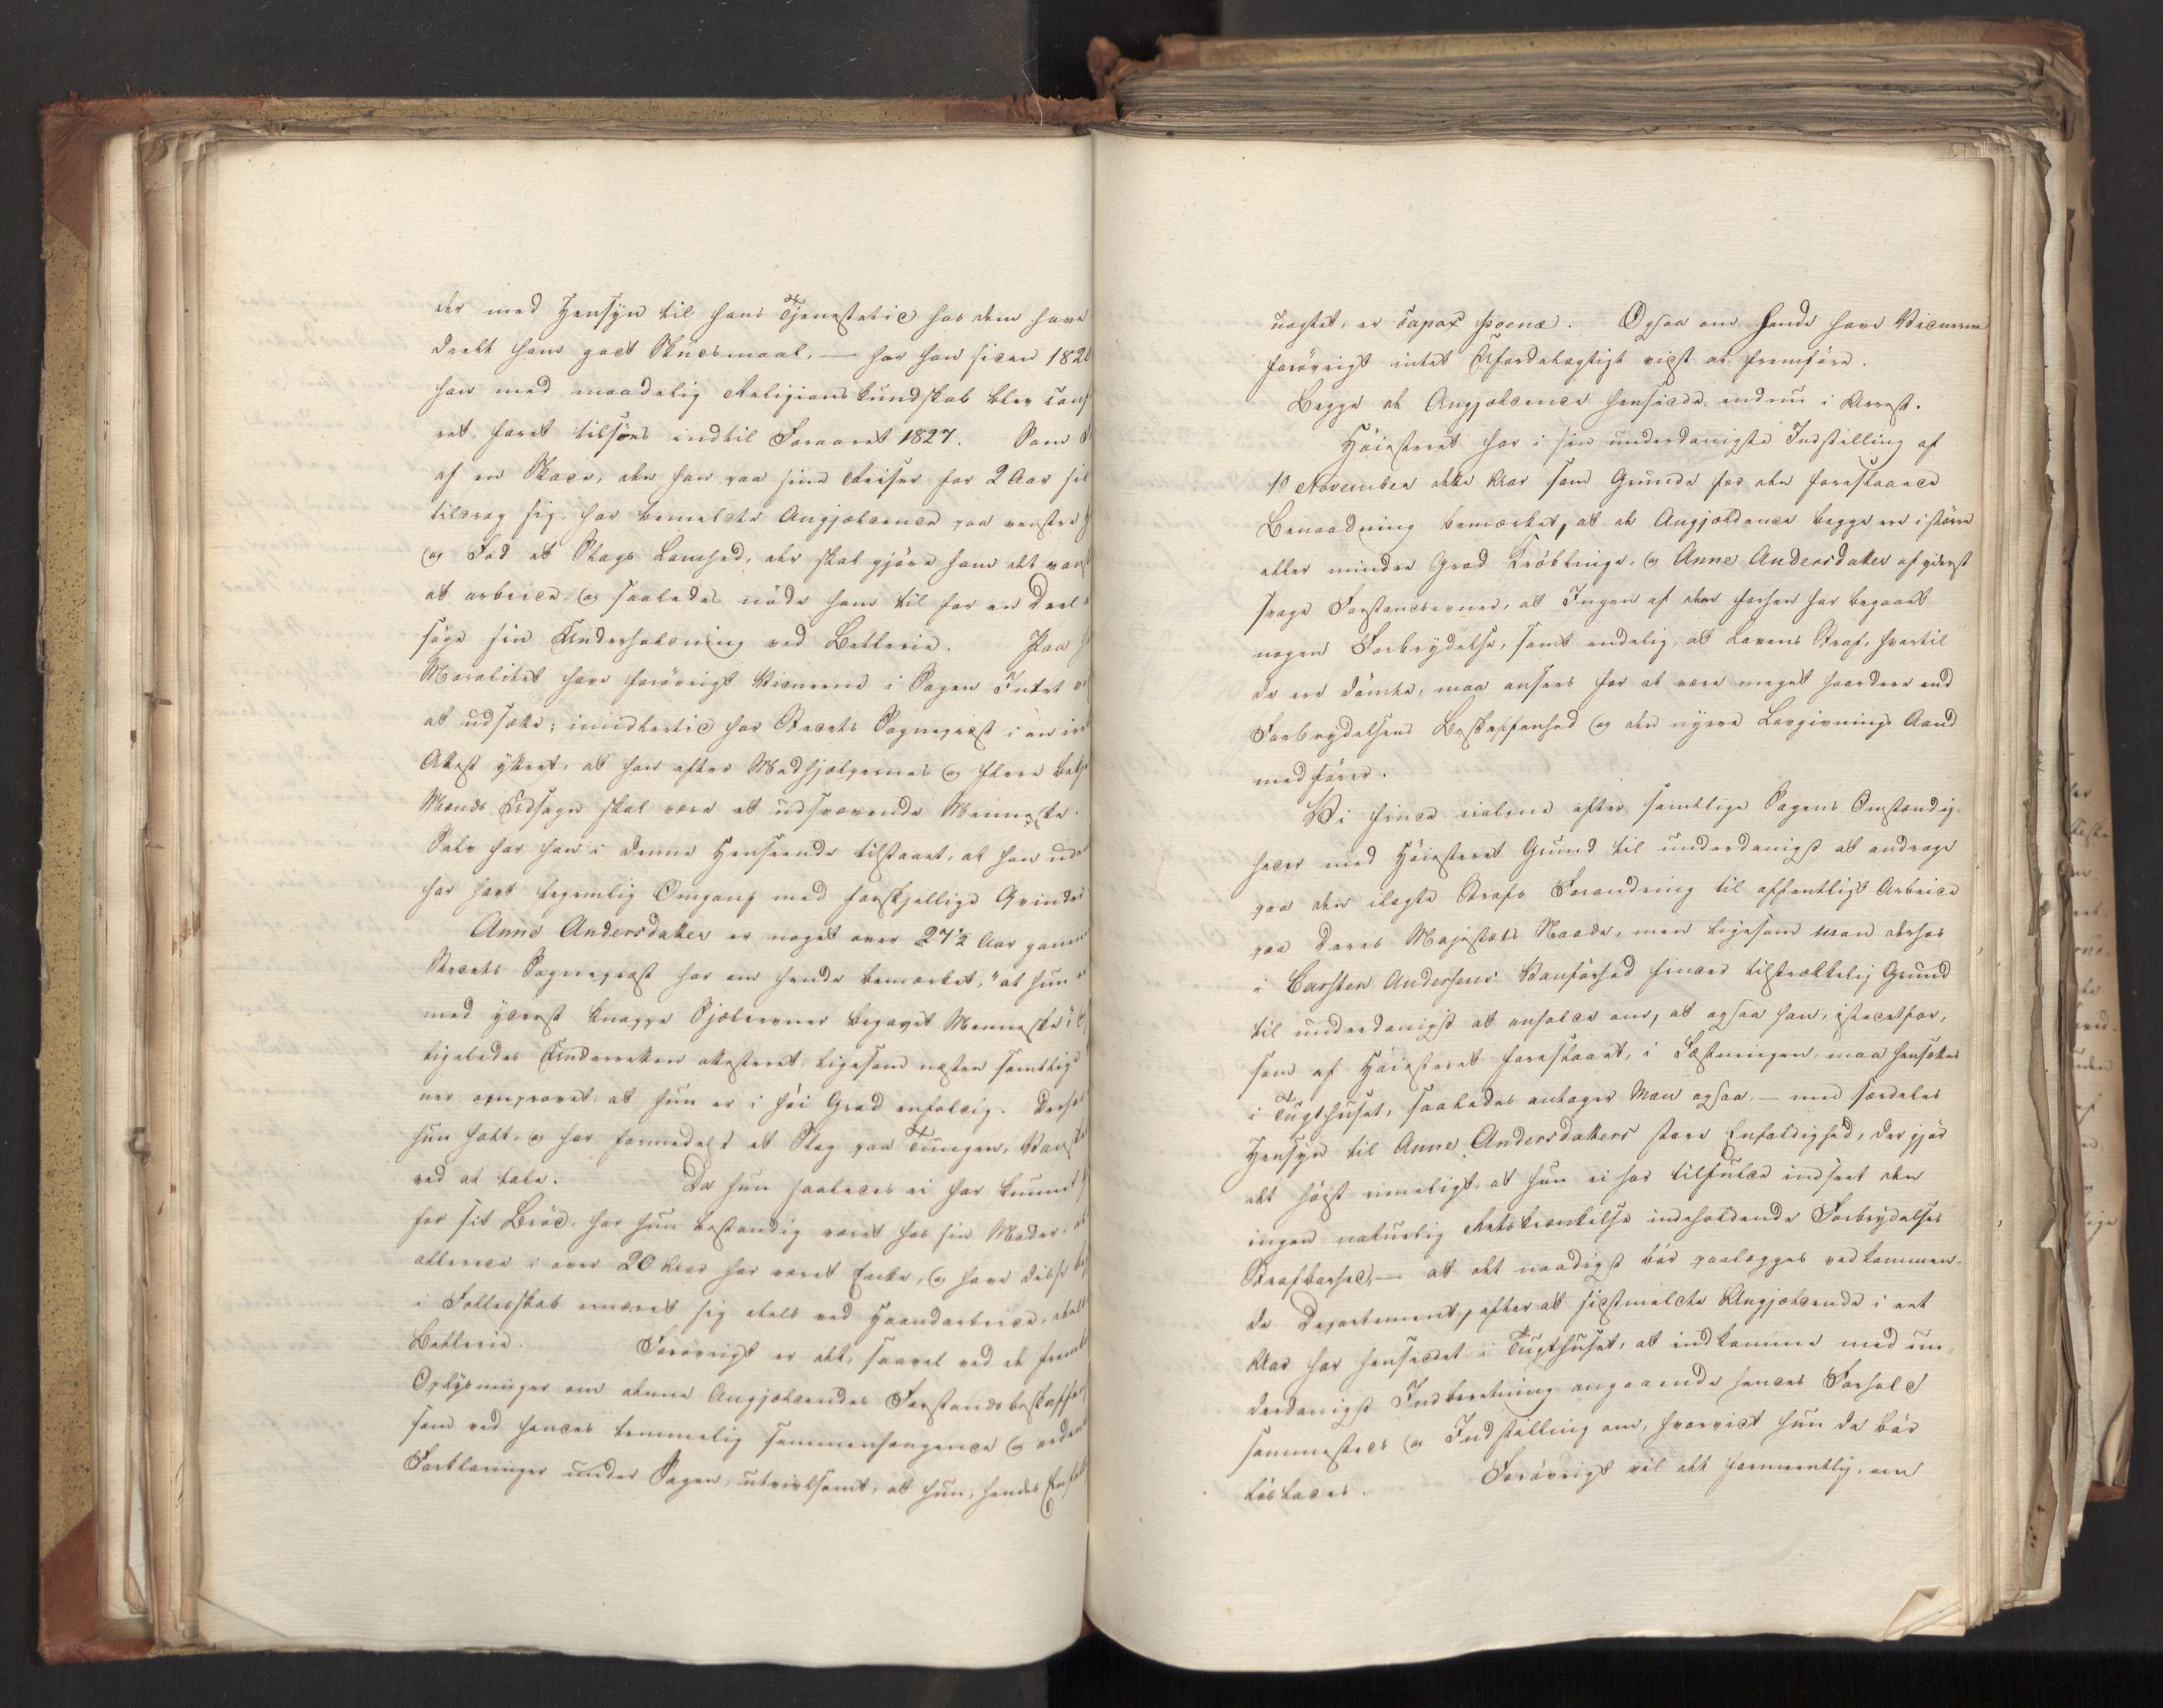 der med Hensyn til hans Tjenestetid hos dem have
deelt ham godt Skudsmaal, — har han siden 182
han med maadelig Religionskundskab blev conf
ret, faret tilsöes indtil Foraaret 1827. Som
af en Skade, den han paa sine Reiser for 2 Aar si
tildrog sig, har bemeldte Angjældende paa venstre
og Fod et Slags Lamhed, der skal gjöre ham det van
at arbeide, og saaledes nöde ham til for en Deel
söge sin Underholdning ved Betlerie. Paa
Moralitet have forövrigt Vidnerne i Sagen Intet
at udsætte; imidlertid har Stedets Sognepræst i en
Attest yttret, at han efter Medhjælpernes og flere
Mænds Udsagn skal være et udsvævende Menneske.
Selv har han i denne Henseende tilstaaet, at han
har havt legemlig Omgang med forskjellige Qvinder
Anne Andersdatter er noget over 27½ Aar gammel
Stedets Sognepræst har om hende bemærket, "at hun
med yderst knappe Sjælevner begavet Menneske"
ligeledes Underretten attesteret, ligesom næsten samtlige
ner at hun er i höi Grad enfoldig. Derhos
hun halt, og har formedelst et Slag paa Tungen, Vans
ved at tale. Da hun saaledes ei har kunnet
for sit Bröd, har hun bestandig været hos sin Moder,
allerede i over 20 Aar har været Enke, og have disse
i Fællesskab ernæret sig deels ved Haandarbeide, deels
Betlerie. Forövrigt er det, saavel ved de frem
Oplysninger om denne Angjældendes Forstandsbeskaffen
som ved hendes temmelig sammenhængende og orden
Forklaringer under Sagen, utvivlsomt, at hun, hendes Enfol
uagtet, er capax poenæ. Ogsaa om hende have Vidnerne
forövrigt intet Ufordelagtigt vidst at fremföre.
Begge de Angjældende hensidde endnu i Arrest.
Höiesteret har i sin underdanigste Indstilling af
10 November dette Aar som Grunde for den foreslaaede
Benaadning bemærket, at de Angjældende begge ere i större
eller mindre Grad Kröblinge, og Anne Andersdatter af yderst
svage Forstandsevner, at Ingen af dem forhen har begaaet
nogen Forbrydelse, samt endelig, at Lovens Straf, hvortil
de ere dömte, maa ansees for at være meget haardere end
Forbrydelsens Beskaffenhed og den nyere Lovgivnings Aand
medförer.
Vi finde ialene efter samtlige Sagens Omstændig-
heder med Höiesteret Grund til underdanigst at andrage
paa den ilagte Strafs Forandring til offentligt Arbeide
paa Deres Majestæts Naade, men ligesom man derhos
i Carsten Andersens Vanförhed finder tilstrækkelig Grund
til underdanigst at anholde om, at ogsaa han, istedetfor,
som af Höiesteret foreslaaet, i Fæstningen, maa hensættes
i Tugthuset, saaledes antager Man ogsaa, — med særdeles
Hensyn til Anne Andersdatters store Enfoldighed, der gjör
det höist rimeligt, at hun ei har tilfulde indseet den
ingen naturlig Retskrænkelse indeholdende Forbrydelses
Strafbarhed, — at det naadigst bör paalægges vedkommen-
de Departement, efter at sidstmeldte Angjældende i eet
Aar har hensiddet i Tugthuset, at indkomme med un-
derdanigst Indberetning angaaende hendes Forhold
sammesteds og Indstilling om, hvorvidt hun da bör
löslades. Forövrigt vil det formeentlig, om